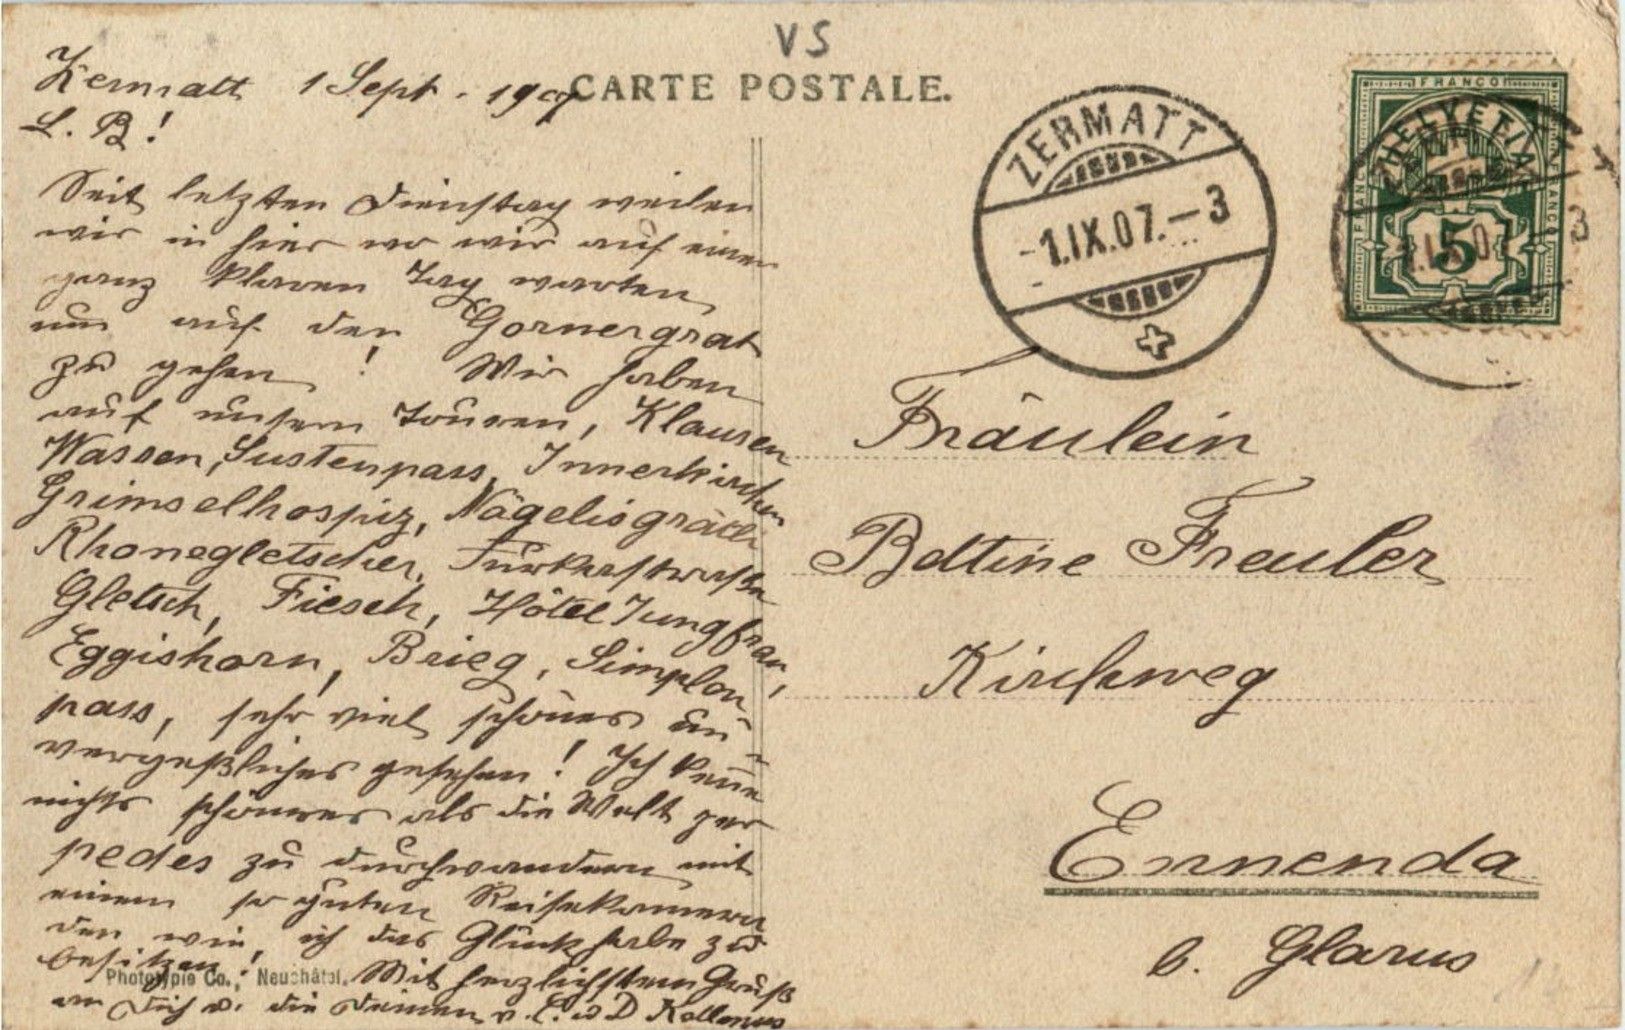 VS
CARTE POSTALE.
Zermatt 1 Sept. 1907
L. B!
Seit letzten Dienstag weilen
wir in hier wo wir auf einen
ganz klaren Tag warten
um auf den Gornergrat
zu gehen! Wir haben
auf unsern Touren, Klausen
Wassen, Sustenpass, Innerkirchen
Grimselhospiz, Nägelisgrätli
Rhonegletscher, Furkastrasse
Gletsch, Fiesch, Hôtel Jungfrau,
Eggishorn, Brieg, Simplon-
pass, sehr viel schönes un-
vergeßliches gesehen! Ich kenne
nichts schöneres als die Welt per
pedes zu durchwandern mit
einem so guten Reisekamera
den wie ich das Glück habe zu
besitzen! Mit herzlichstem Gruß
an Dich u. die Deinen v.
Phototypie Co., Neuchâtel.
ZERMATT
-1.IX.07.-3
FRANCO
HELVETIA
FRANCO
FRANCO
5
Fräulein
Bettine Freuler
Kirchweg
Ennenda
b. Glarus